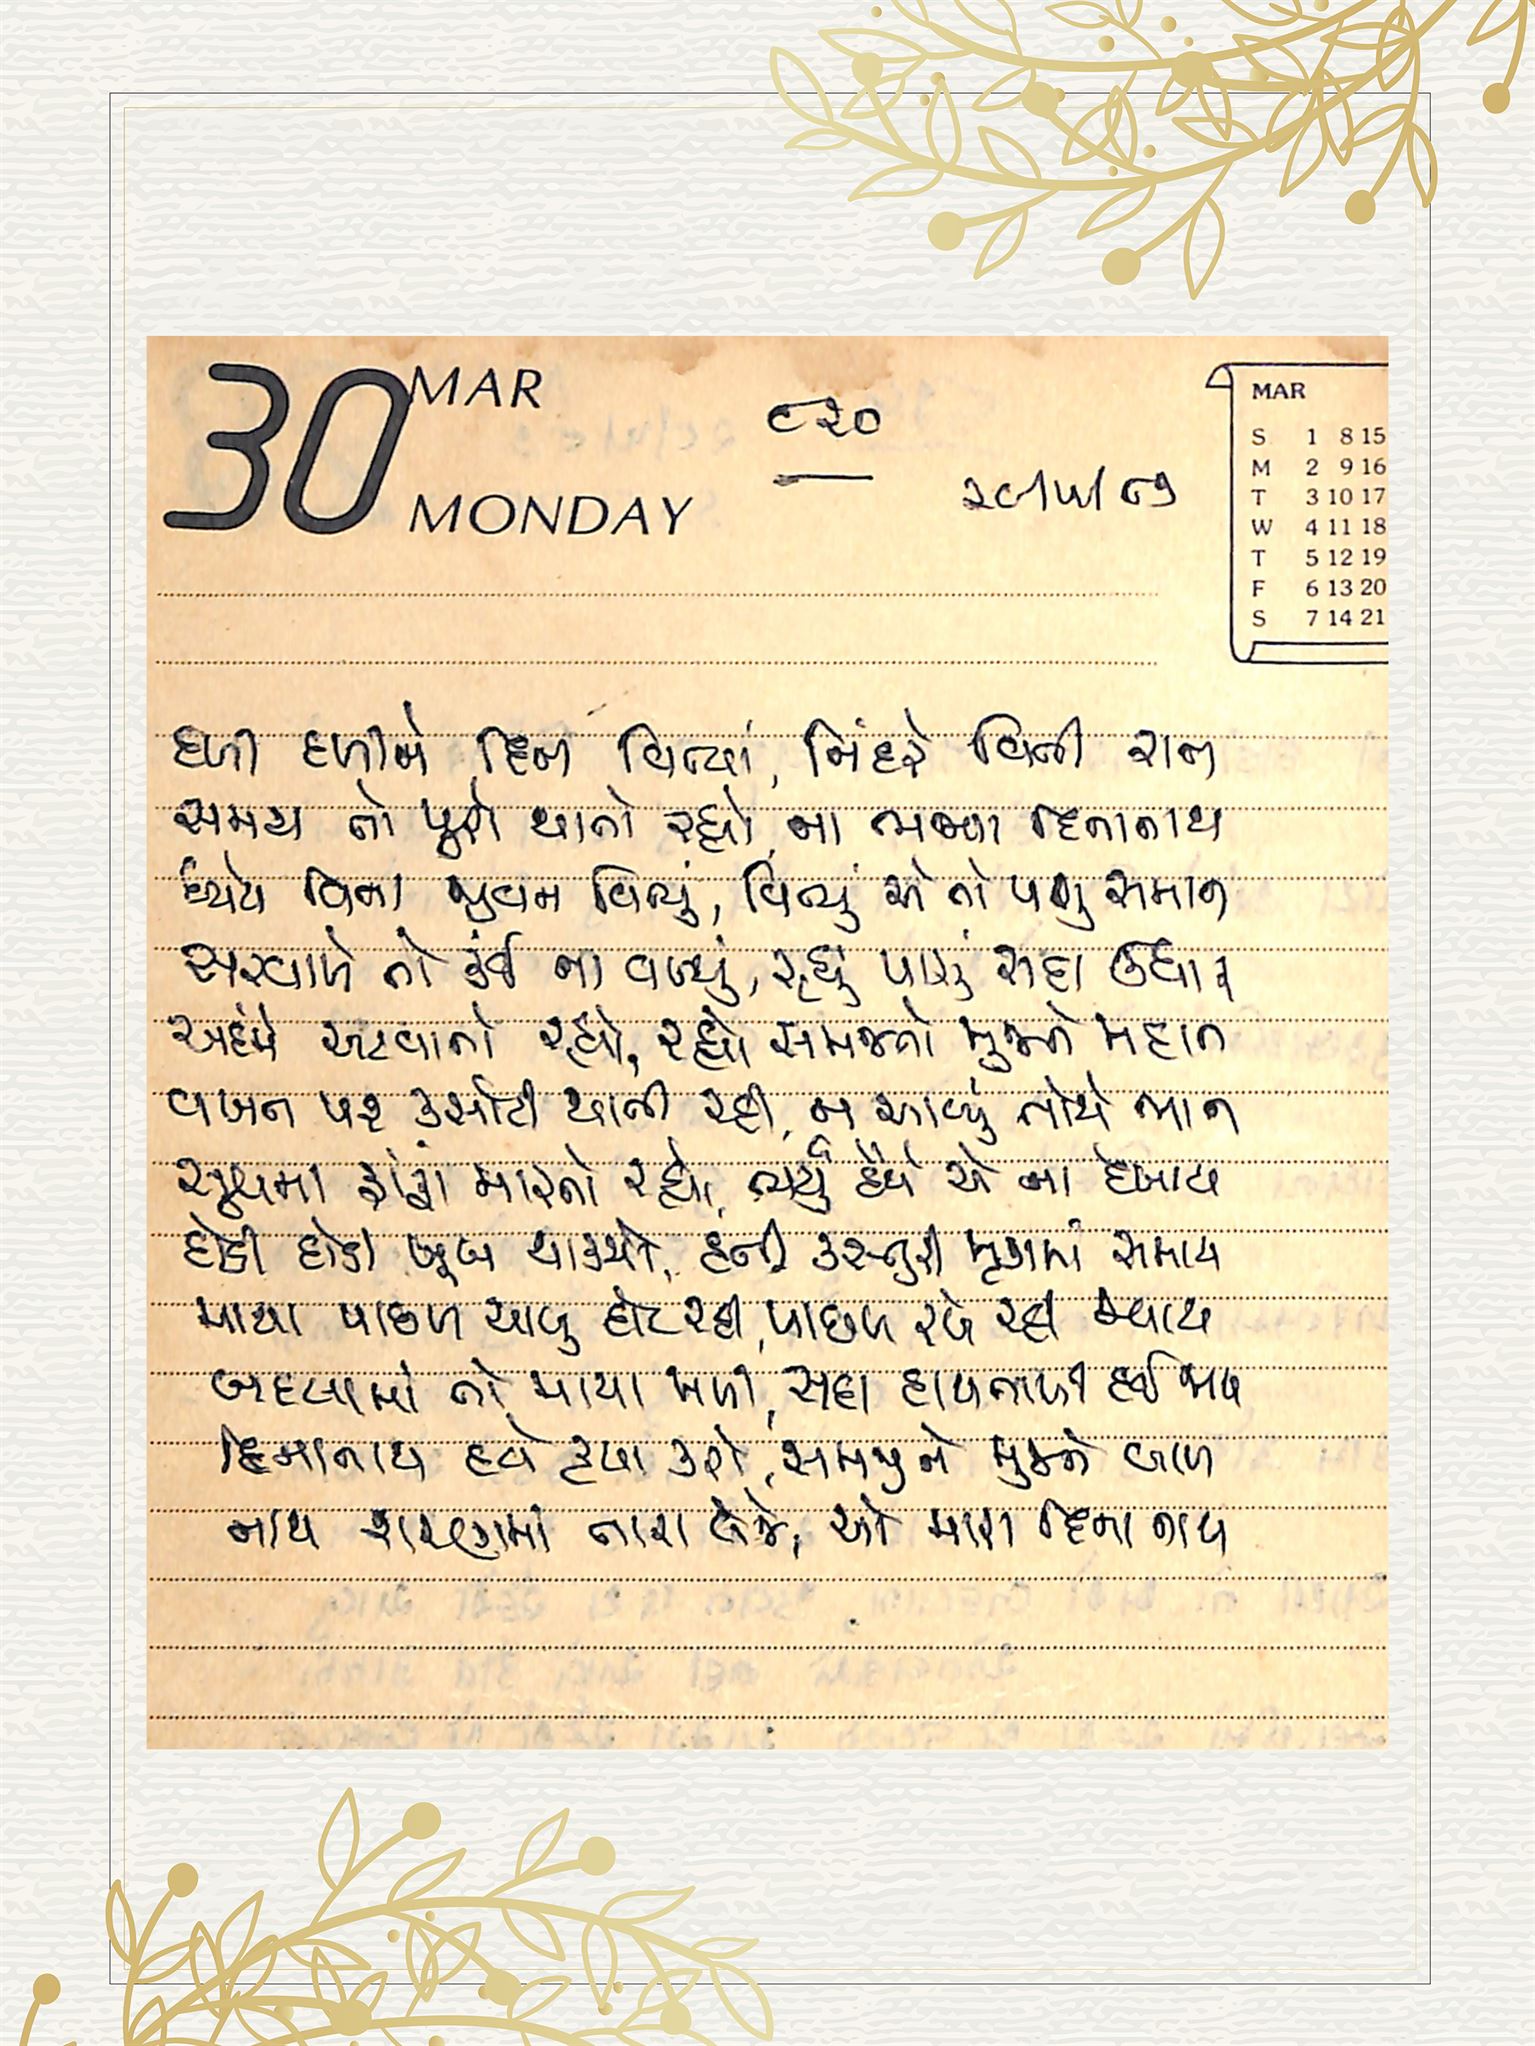 30 MAR
MONDAY
૯૨૦
૨૯/૫/૮૭
MAR
S 1 8 15
M 2 9 16
T 3 10 17
W 4 11 18
T 5 12 19
F 6 13 20
S 7 14 21
દળી દળીને દિન વિત્યાં, નિંદરે વિતી રાત
સમય તો પૂરો થાતો રહ્યો, ના ભજ્યા દિનાનાથ
ધ્યેય વિના જીવન વિત્યું, વિત્યું એ તો પશુ સમાન
સરવાળે તો કંઈ ના વળ્યું, રહ્યું પાસું સદા ઉધાર
અહંમે અટવાતો રહ્યો, રહ્યો સમજતો મુજને મહાન
વખત પર કસોટી થાતી રહી, ન આવ્યું તોયે ભાન
સૂયમા ફાંફાં મારતો રહ્યો, ભર્યું હૈયે એ ના દેખાય
દોડી દોડી ખૂબ થાક્યો, હતી કસ્તુરી મૃગમાં સમાય
માયા પાછળ ચાલુ દોટ રહી, પાછળ રખે રહી જવાય
બદલામાં તો માયા મળી, સદા હાથતાળી દઈ જાય
દિનાનાથ હવે કૃપા કરો, સમજીને મુજને બાળ
નાથ શરણમાં તારા લેજે, ઓ મારા દિનાનાથ